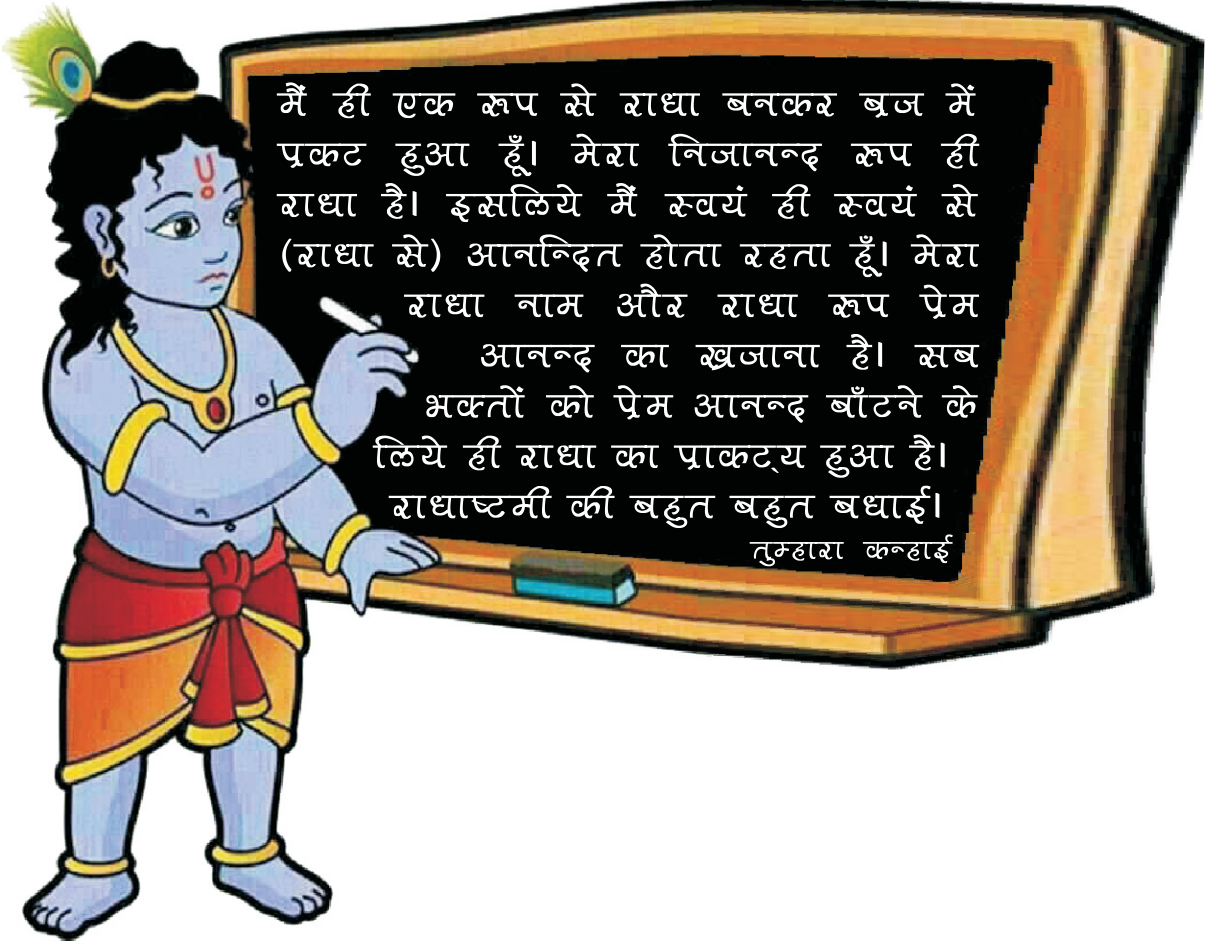 मैं ही एक रूप से राधा बनकर ब्रज में
प्रकट हुआ हूँ। मेरा निजानन्द रूप ही
राधा है। इसलिये मैं स्वयं ही स्वयं से
(राधा से) आनन्दित होता रहता हूँ। मेरा
राधा नाम और राधा रूप प्रेम
आनन्द का ख़जाना है। सब
भक्तों को प्रेम आनन्द बाँटने के
लिये ही राधा का प्राकट्य हुआ है।
राधाष्टमी की बहुत बहुत बधाई।
तुम्हारा कन्हाई